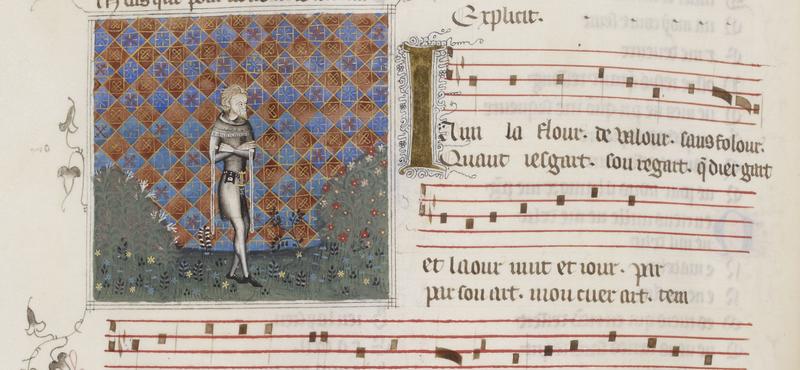 Explicit.
Aim la flour. de valour. sans folour.
Quant iesgart. son regart. q̃ dier gart
et laour nuit et iour. par
par son art. mon cuer art. tem